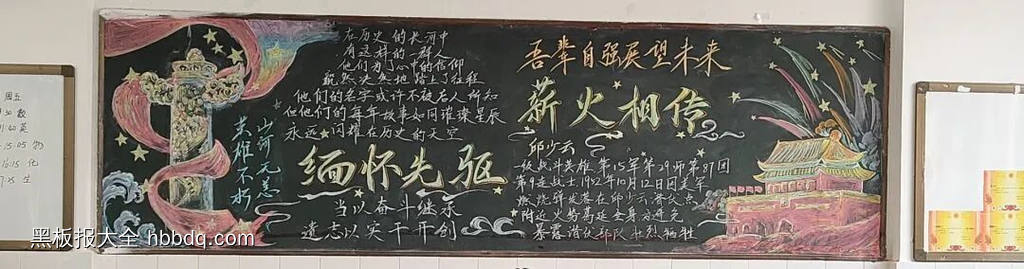 周五
在历史的长河中
有这样的一群人
他们为了心中的信仰
毅然决然地踏上了征程
他们的名字或许不被后人所知
但他们的英雄故事如同璀璨星辰
永远闪耀在历史的天空
山河无恙
英雄不朽
缅怀先驱
当以奋斗继承
遗志以实干开创
吾辈自强展望未来
薪火相传
邱少云
一级战斗英雄 第15军第29师第87团
第9连战士,1952年10月12日因美军
燃烧弹
附近火势蔓延全身
暴露潜伏部队壮烈牺牲
黑板报大全 hbbdq.com